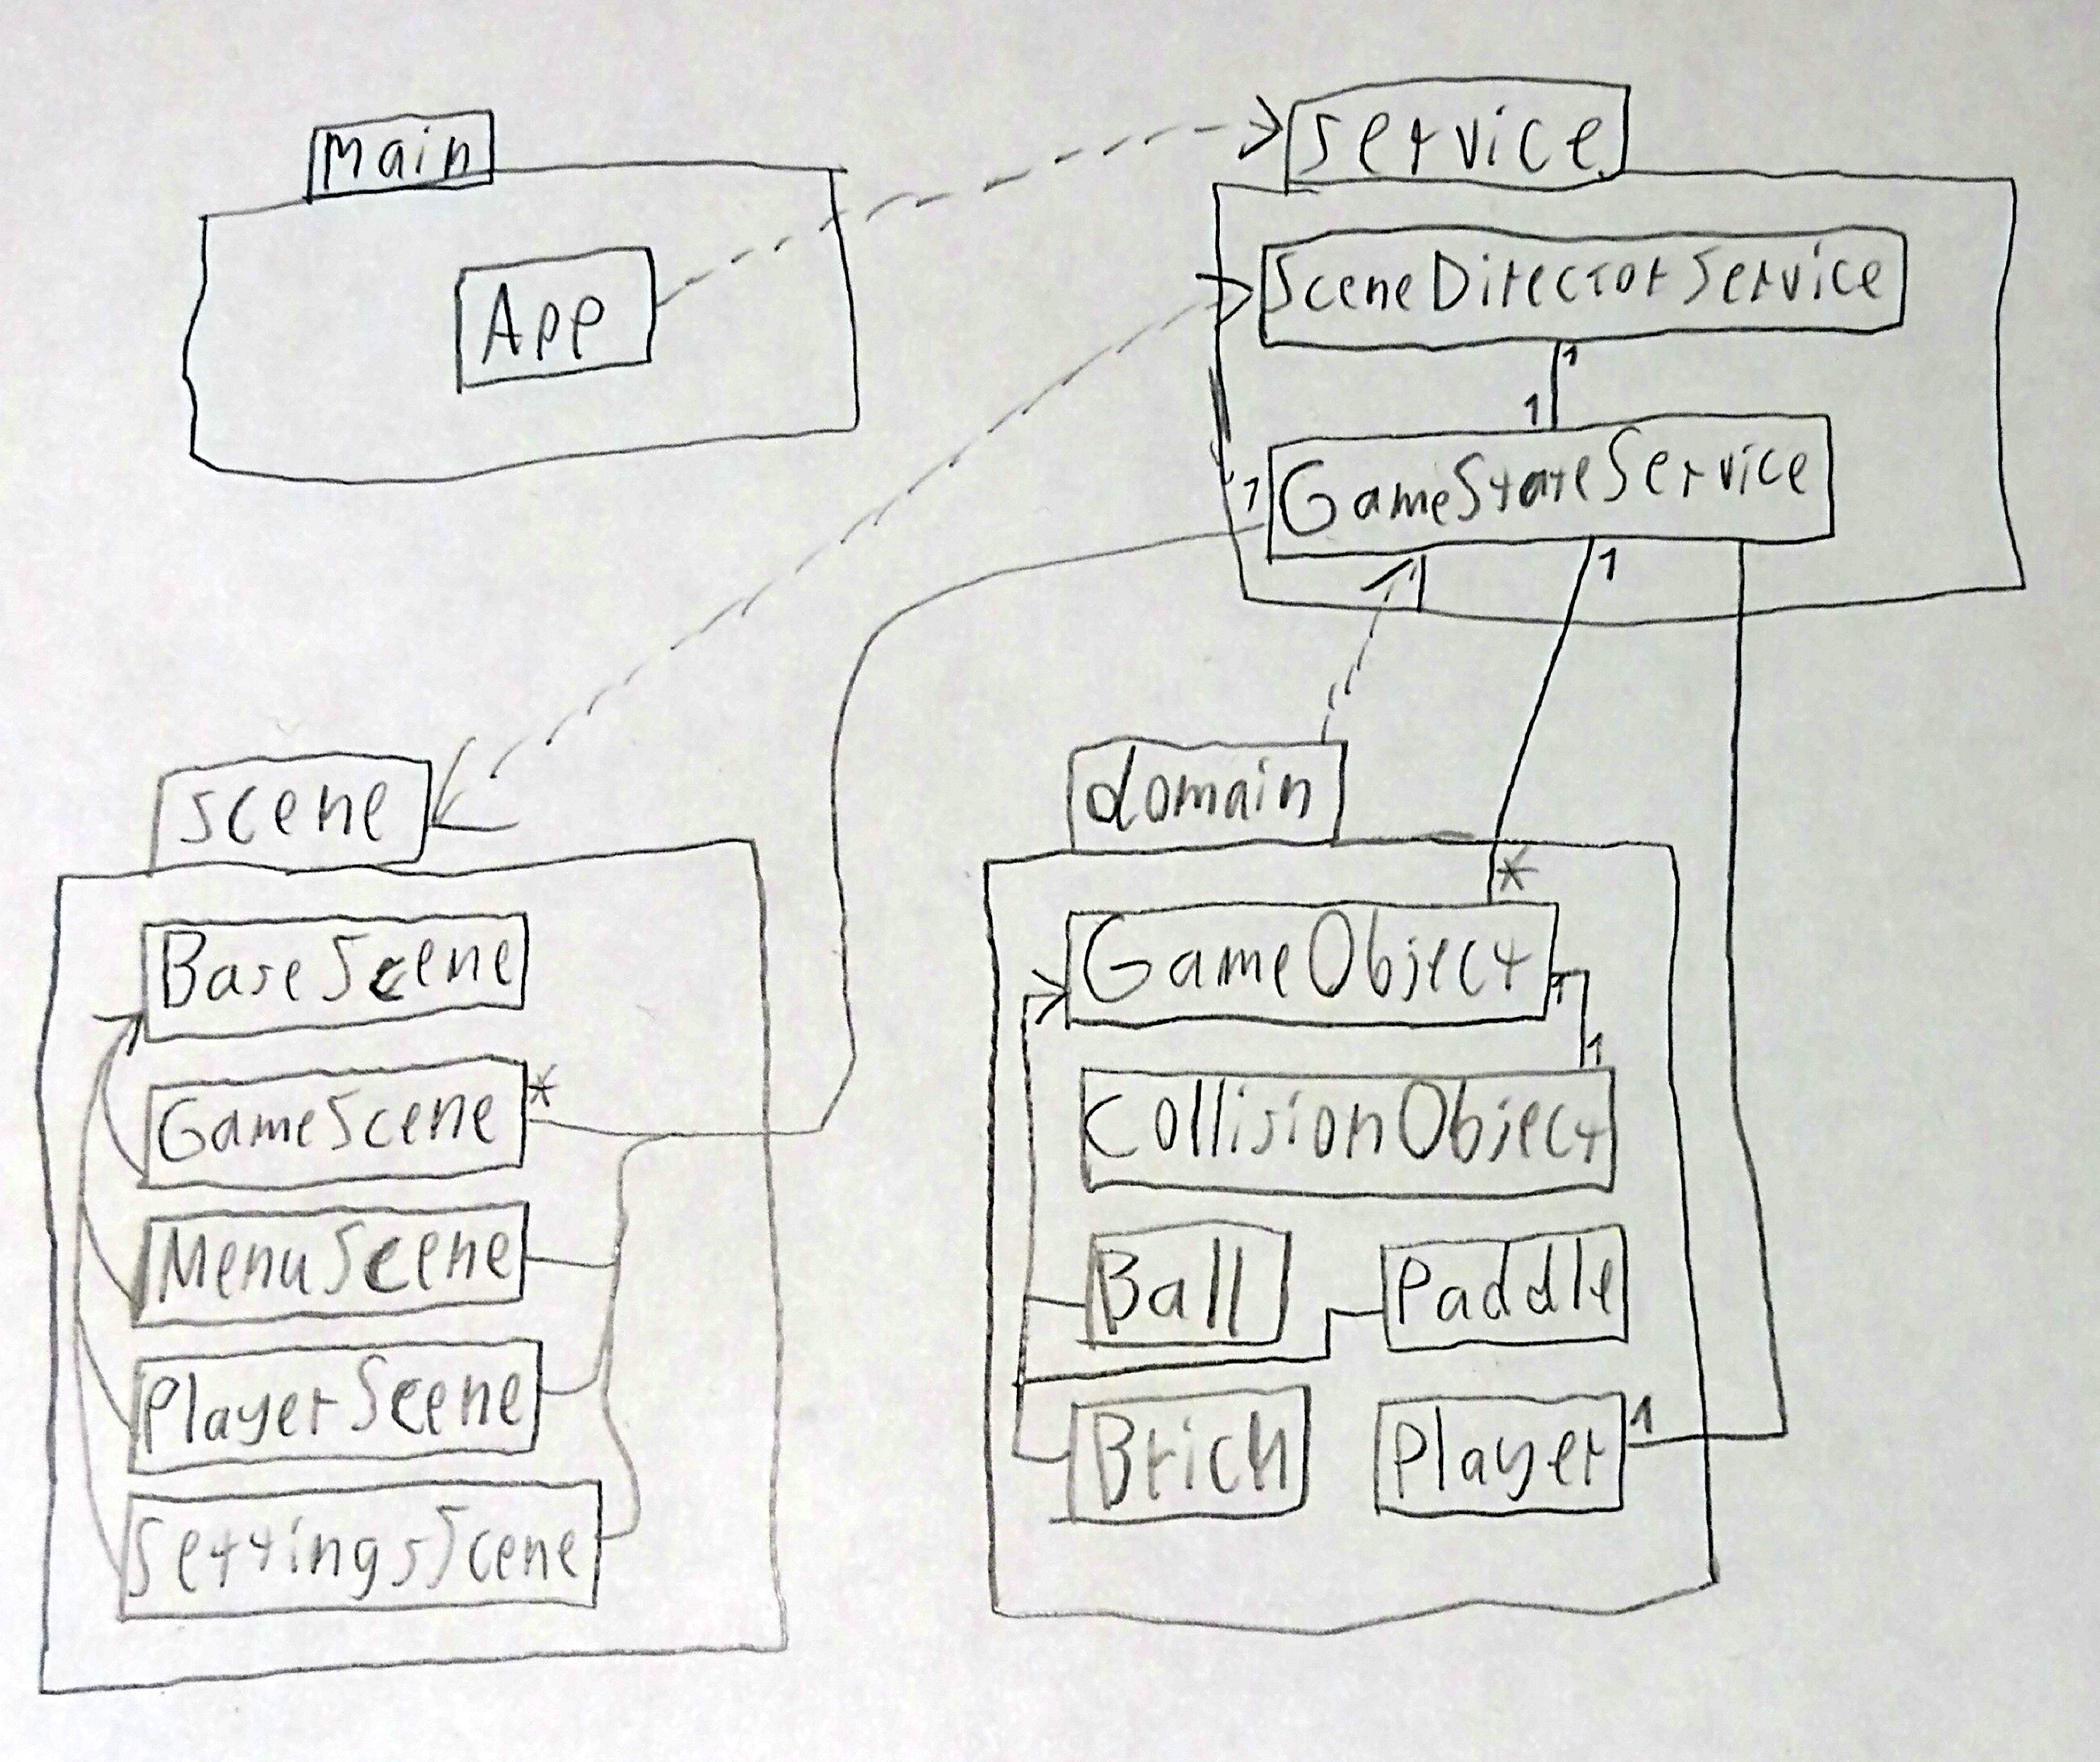 Main
App
service
SceneDirectorService
1
1
GameStateService
1
1
scene
BaseScene
GameScene
*
MenuScene
PlayerScene
SettingsScene
domain
*
GameObject
1
1
CollisionObject
Ball
Paddle
Brick
Player
1